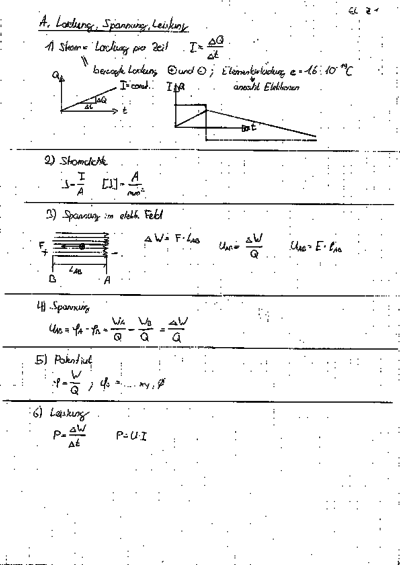 A. Ladung, Spannung, Leistung
1) Strom = Ladung pro Zeit I = ΔQ/Δt
bewegte Ladung ⊕ und ⊖ ; Elementarladung e = 1,6 · 10⁻¹⁹ C
anzahl Elektronen
Q I = const. ΔQ Δt t
I Q t
2) Stromdichte
J = I/A [J] = A/mm²
3) Spannung im elektr. Feld
F + − B A l_AB
ΔW = F · l_AB U_AB = ΔW/Q U_AB = E · l_AB
4) Spannung
U_AB = φ_A - φ_B = W_A/Q - W_B/Q = ΔW/Q
5) Potential
φ = W/Q ;
6) Leistung
P = ΔW/Δt P = U · I